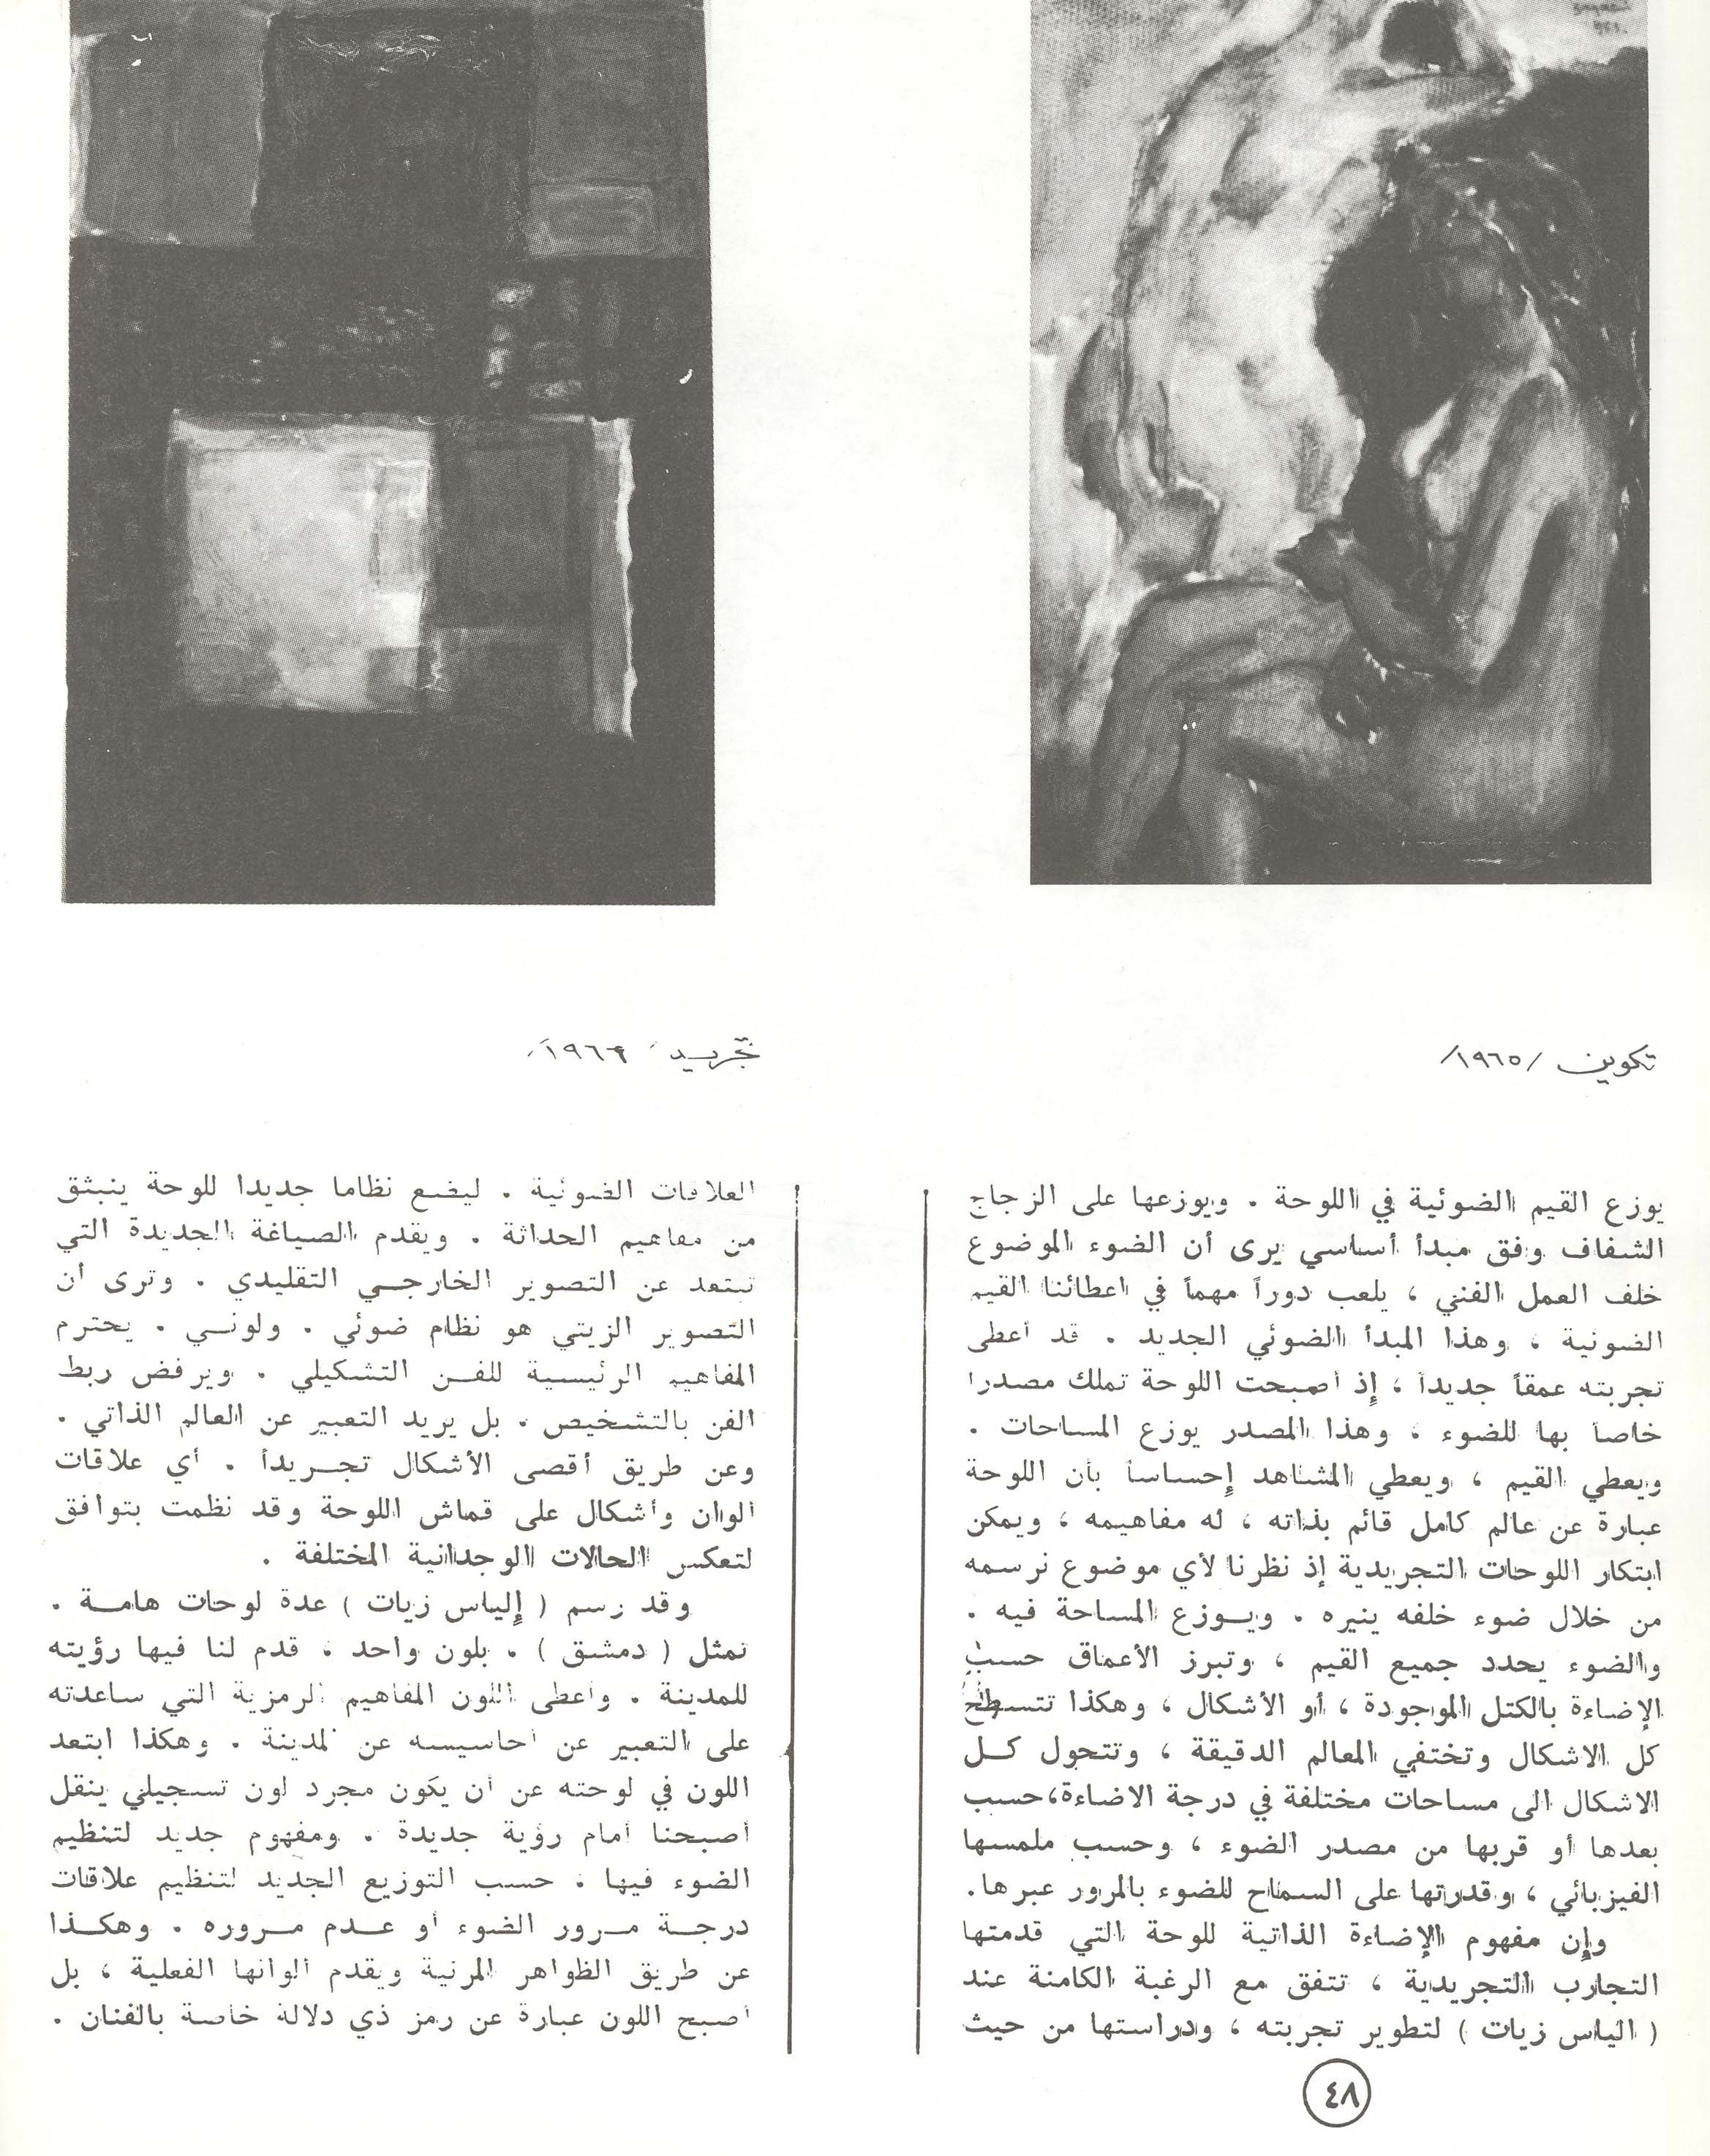 تكوين /١٩٦٥/
يوزع القيم الضوئية في اللوحة . ويوزعها على الزجاج
الشفاف وفق مبدأ أساسي يرى أن الضوء الموضوع
خلف العمل الفني ، يلعب دوراً مهماً في اعطائنا القيم
الضوئية ، وهذا المبدأ الضوئي الجديد . قد أعطى
تجربته عمقاً جديداً ، إذ أصبحت اللوحة تملك مصدرا
خاصاً بها للضوء ، وهذا المصدر يوزع المساحات .
ويعطي القيم ، ويعطي المشاهد إحساساً بأن اللوحة
عبارة عن عالم كامل قائم بذاته ، له مفاهيمه ، ويمكن
ابتكار اللوحات التجريدية إذ نظرنا لأي موضوع نرسمه
من خلال ضوء خلفه ينيره . ويــوزع المساحة فيه .
والضوء يحدد جميع القيم ، وتبرز الأعماق حسب
الإضاءة بالكتل الموجودة ، أو الأشكال ، وهكذا تتسطح
كل الاشكال وتختفي المعالم الدقيقة ، وتتحول كــل
الاشكال الى مساحات مختلفة في درجة الاضاءة،حسب
بعدها أو قربها من مصدر الضوء ، وحسب ملمسها
الفيزيائي ، وقدرتها على السماح للضوء بالمرور عبرها.
وإن مفهوم الإضاءة الذاتية للوحة التي قدمتها
التجارب التجريدية ، تتفق مع الرغبة الكامنة عند
( الياس زيات ) لتطوير تجربته ، ودراستها من حيث
تجريد ١٩٦٤
العلاقات الضوئية . ليضع نظاما جديدا للوحة ينبثق
من مفاهيم الحداثة . ويقدم الصياغة الجديدة التي
تبتعد عن التصوير الخارجــي التقليدي . وترى أن
التصوير الزيتي هو نظام ضوئي . ولونــي . يحترم
المفاهيم الرئيسية للفــن التشكيلي . ويرفض ربط
الفن بالتشخيص . بل يريد التعبير عن العالم الذاتي .
وعن طريق أقصى الأشكال تجــريداً . أي علاقات
ألوان وأشكال على قماش اللوحة وقد نظمت بتوافق
لتعكس الحالات الوجدانية المختلفة .
وقد رسم ( إلياس زيات ) عدة لوحات هامــة .
تمثل ( دمشق ) . بلون واحد ، قدم لنا فيها رؤيته
للمدينة . وأعطى اللون المفاهيم الرمزية التي ساعدته
على التعبير عن أحاسيسه عن المدينة . وهكذا ابتعد
اللون في لوحته عن أن يكون مجرد لون تسجيلي ينقل
أصبحنا أمام رؤية جديدة . ومفهوم جديد لتنظيم
الضوء فيها ، حسب التوزيع الجديد لتنظيم علاقات
درجــة مــرور الضوء أو عــدم مــروره . وهكــذا
عن طريق الظواهر المرئية ويقدم ألوانها الفعلية ، بل
أصبح اللون عبارة عن رمز ذي دلالة خاصة بالفنان .
٤٨